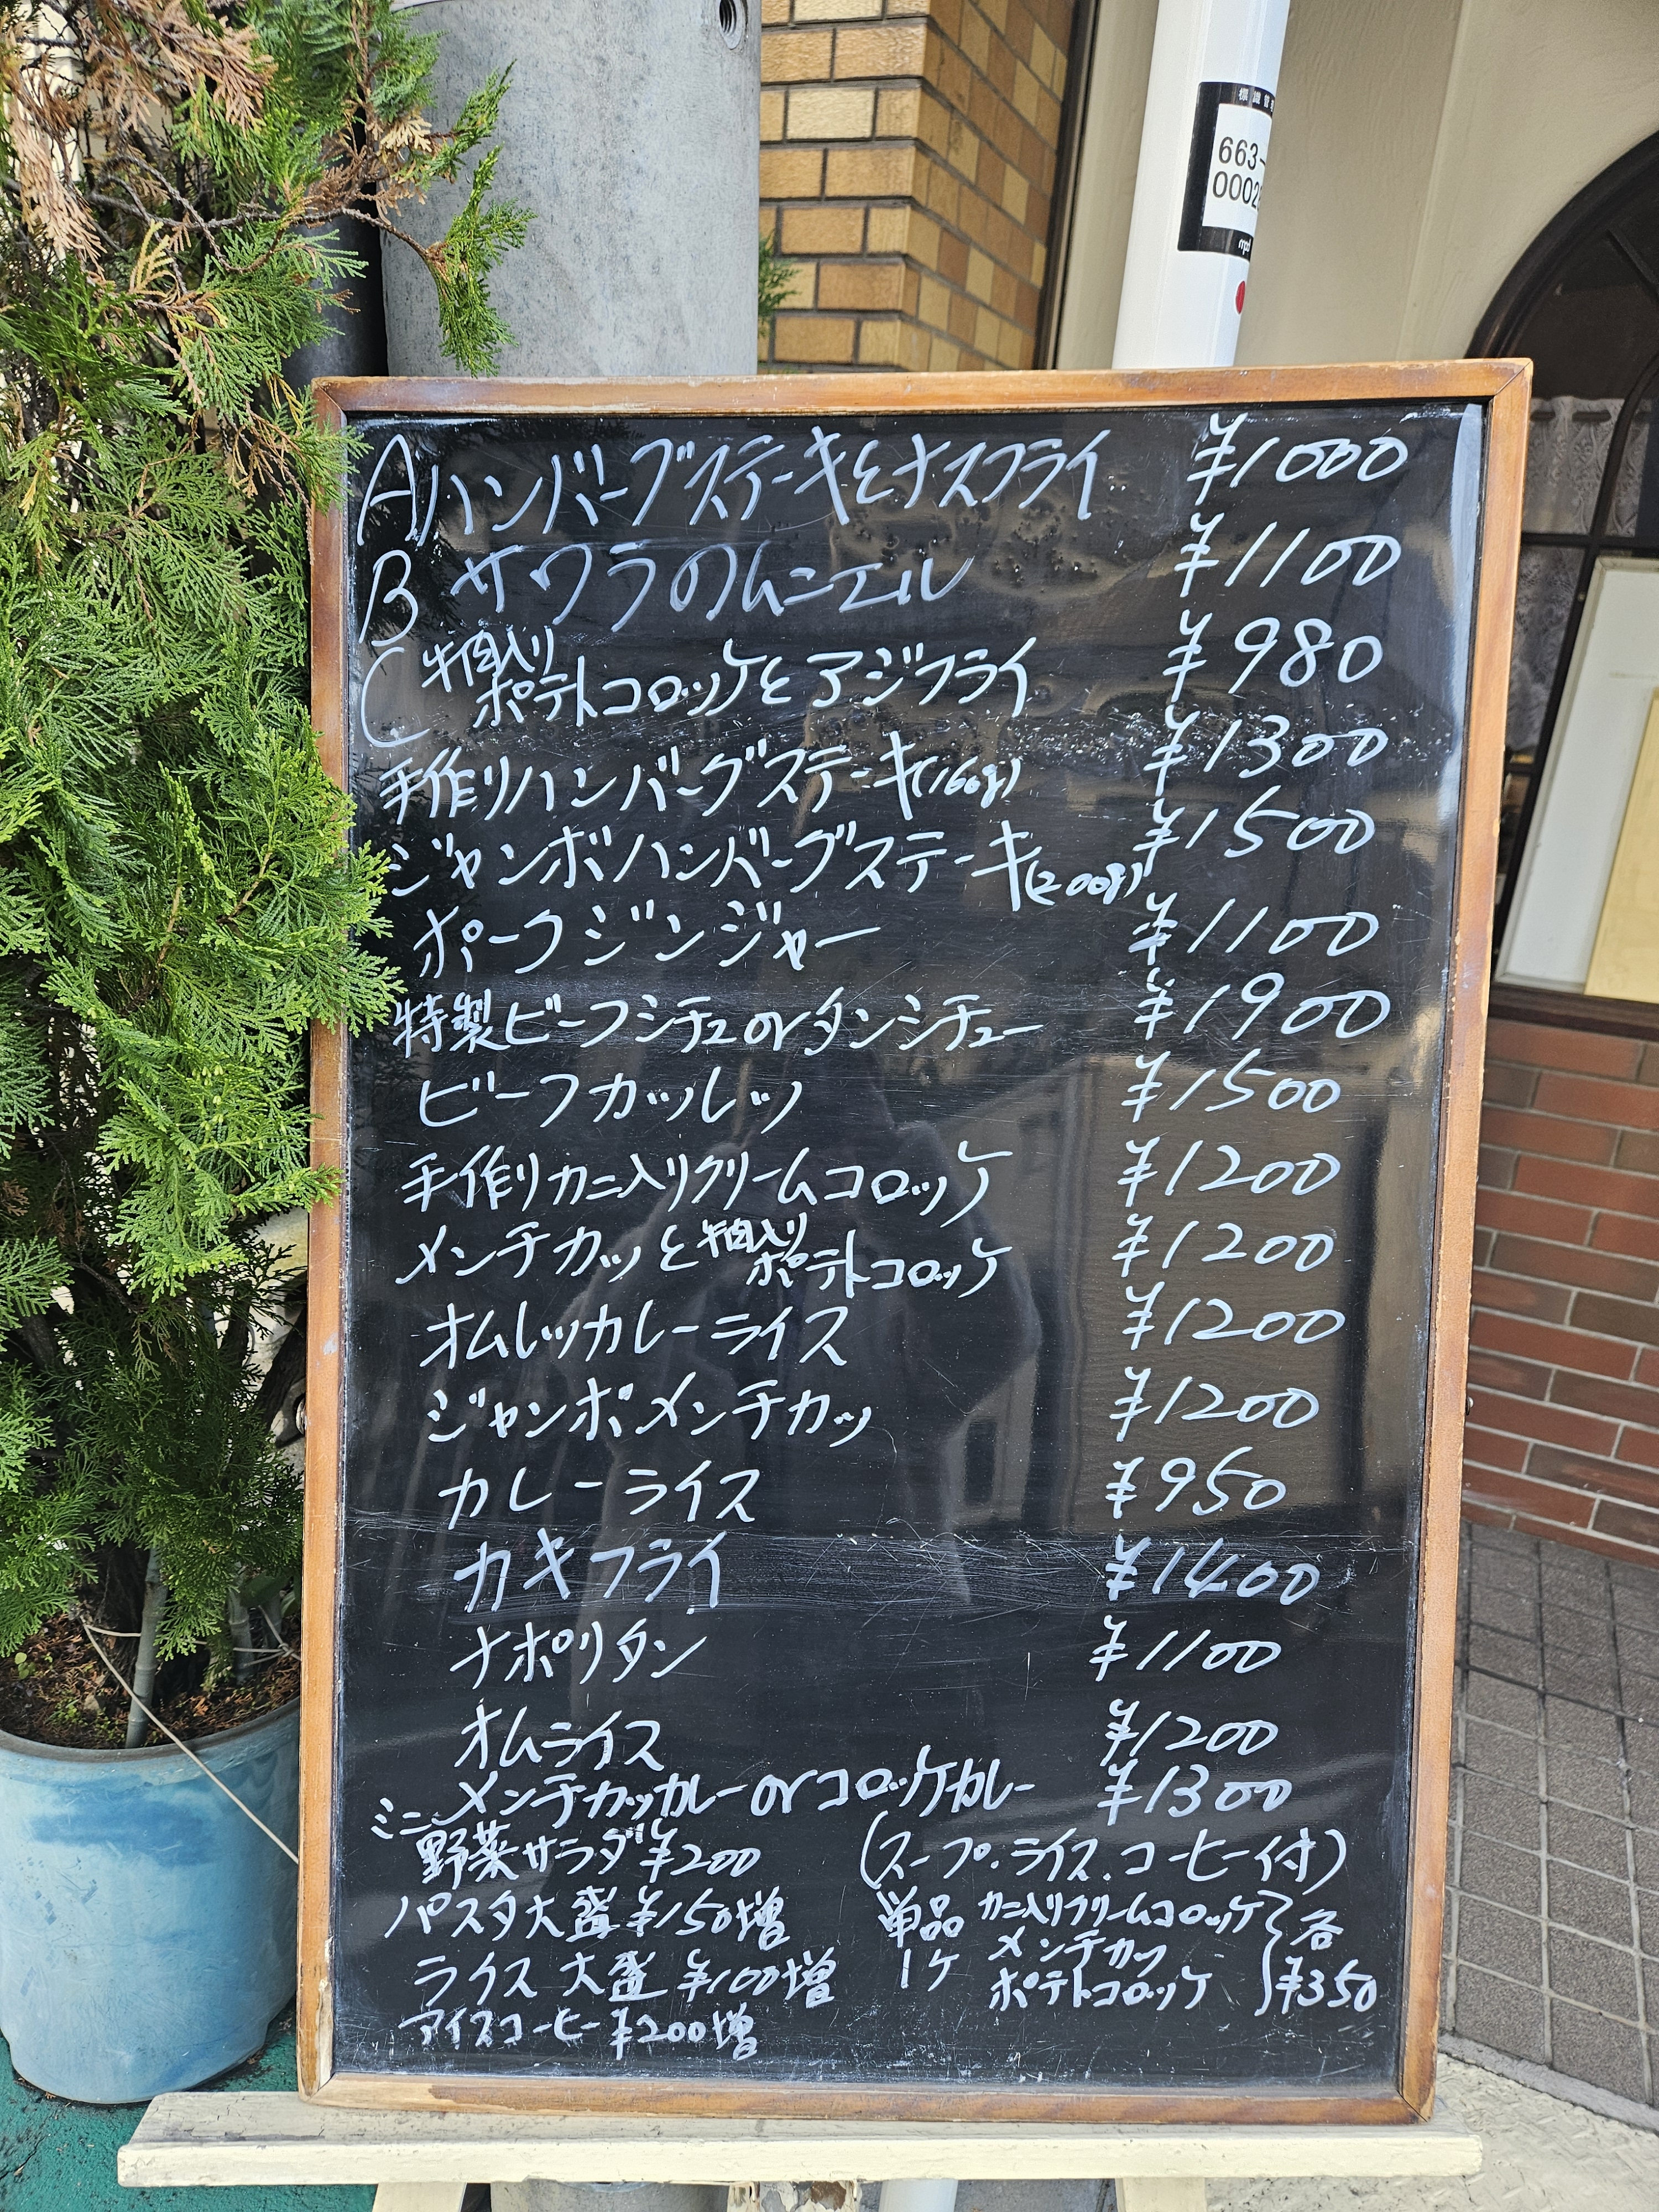 標識管
663-
0002
mpd
Aハンバーグステーキとナスフライ ¥1000
B サワラのムニエル ¥1100
C 牛肉入りポテトコロッケとアジフライ ¥980
手作りハンバーグステーキ(160g) ¥1300
ジャンボハンバーグステーキ(200g) ¥1500
ポークジンジャー ¥1100
特製ビーフシチュorタンシチュー ¥1900
ビーフカツレツ ¥1500
手作りカニ入りクリームコロッケ ¥1200
メンチカツと牛肉入りポテトコロッケ ¥1200
オムレツカレーライス ¥1200
ジャンボメンチカツ ¥1200
カレーライス ¥950
カキフライ ¥1400
ナポリタン ¥1100
オムライス ¥1200
メンチカツカレーorコロッケカレー ¥1300
ミニ野菜サラダ ¥200 (スープ.ライス.コーヒー付)
パスタ大盛 ¥150増
ライス大盛 ¥100増
アイスコーヒー ¥200増
単品1ケ カニ入りクリームコロッケ
メンチカツ
ポテトコロッケ
各¥350